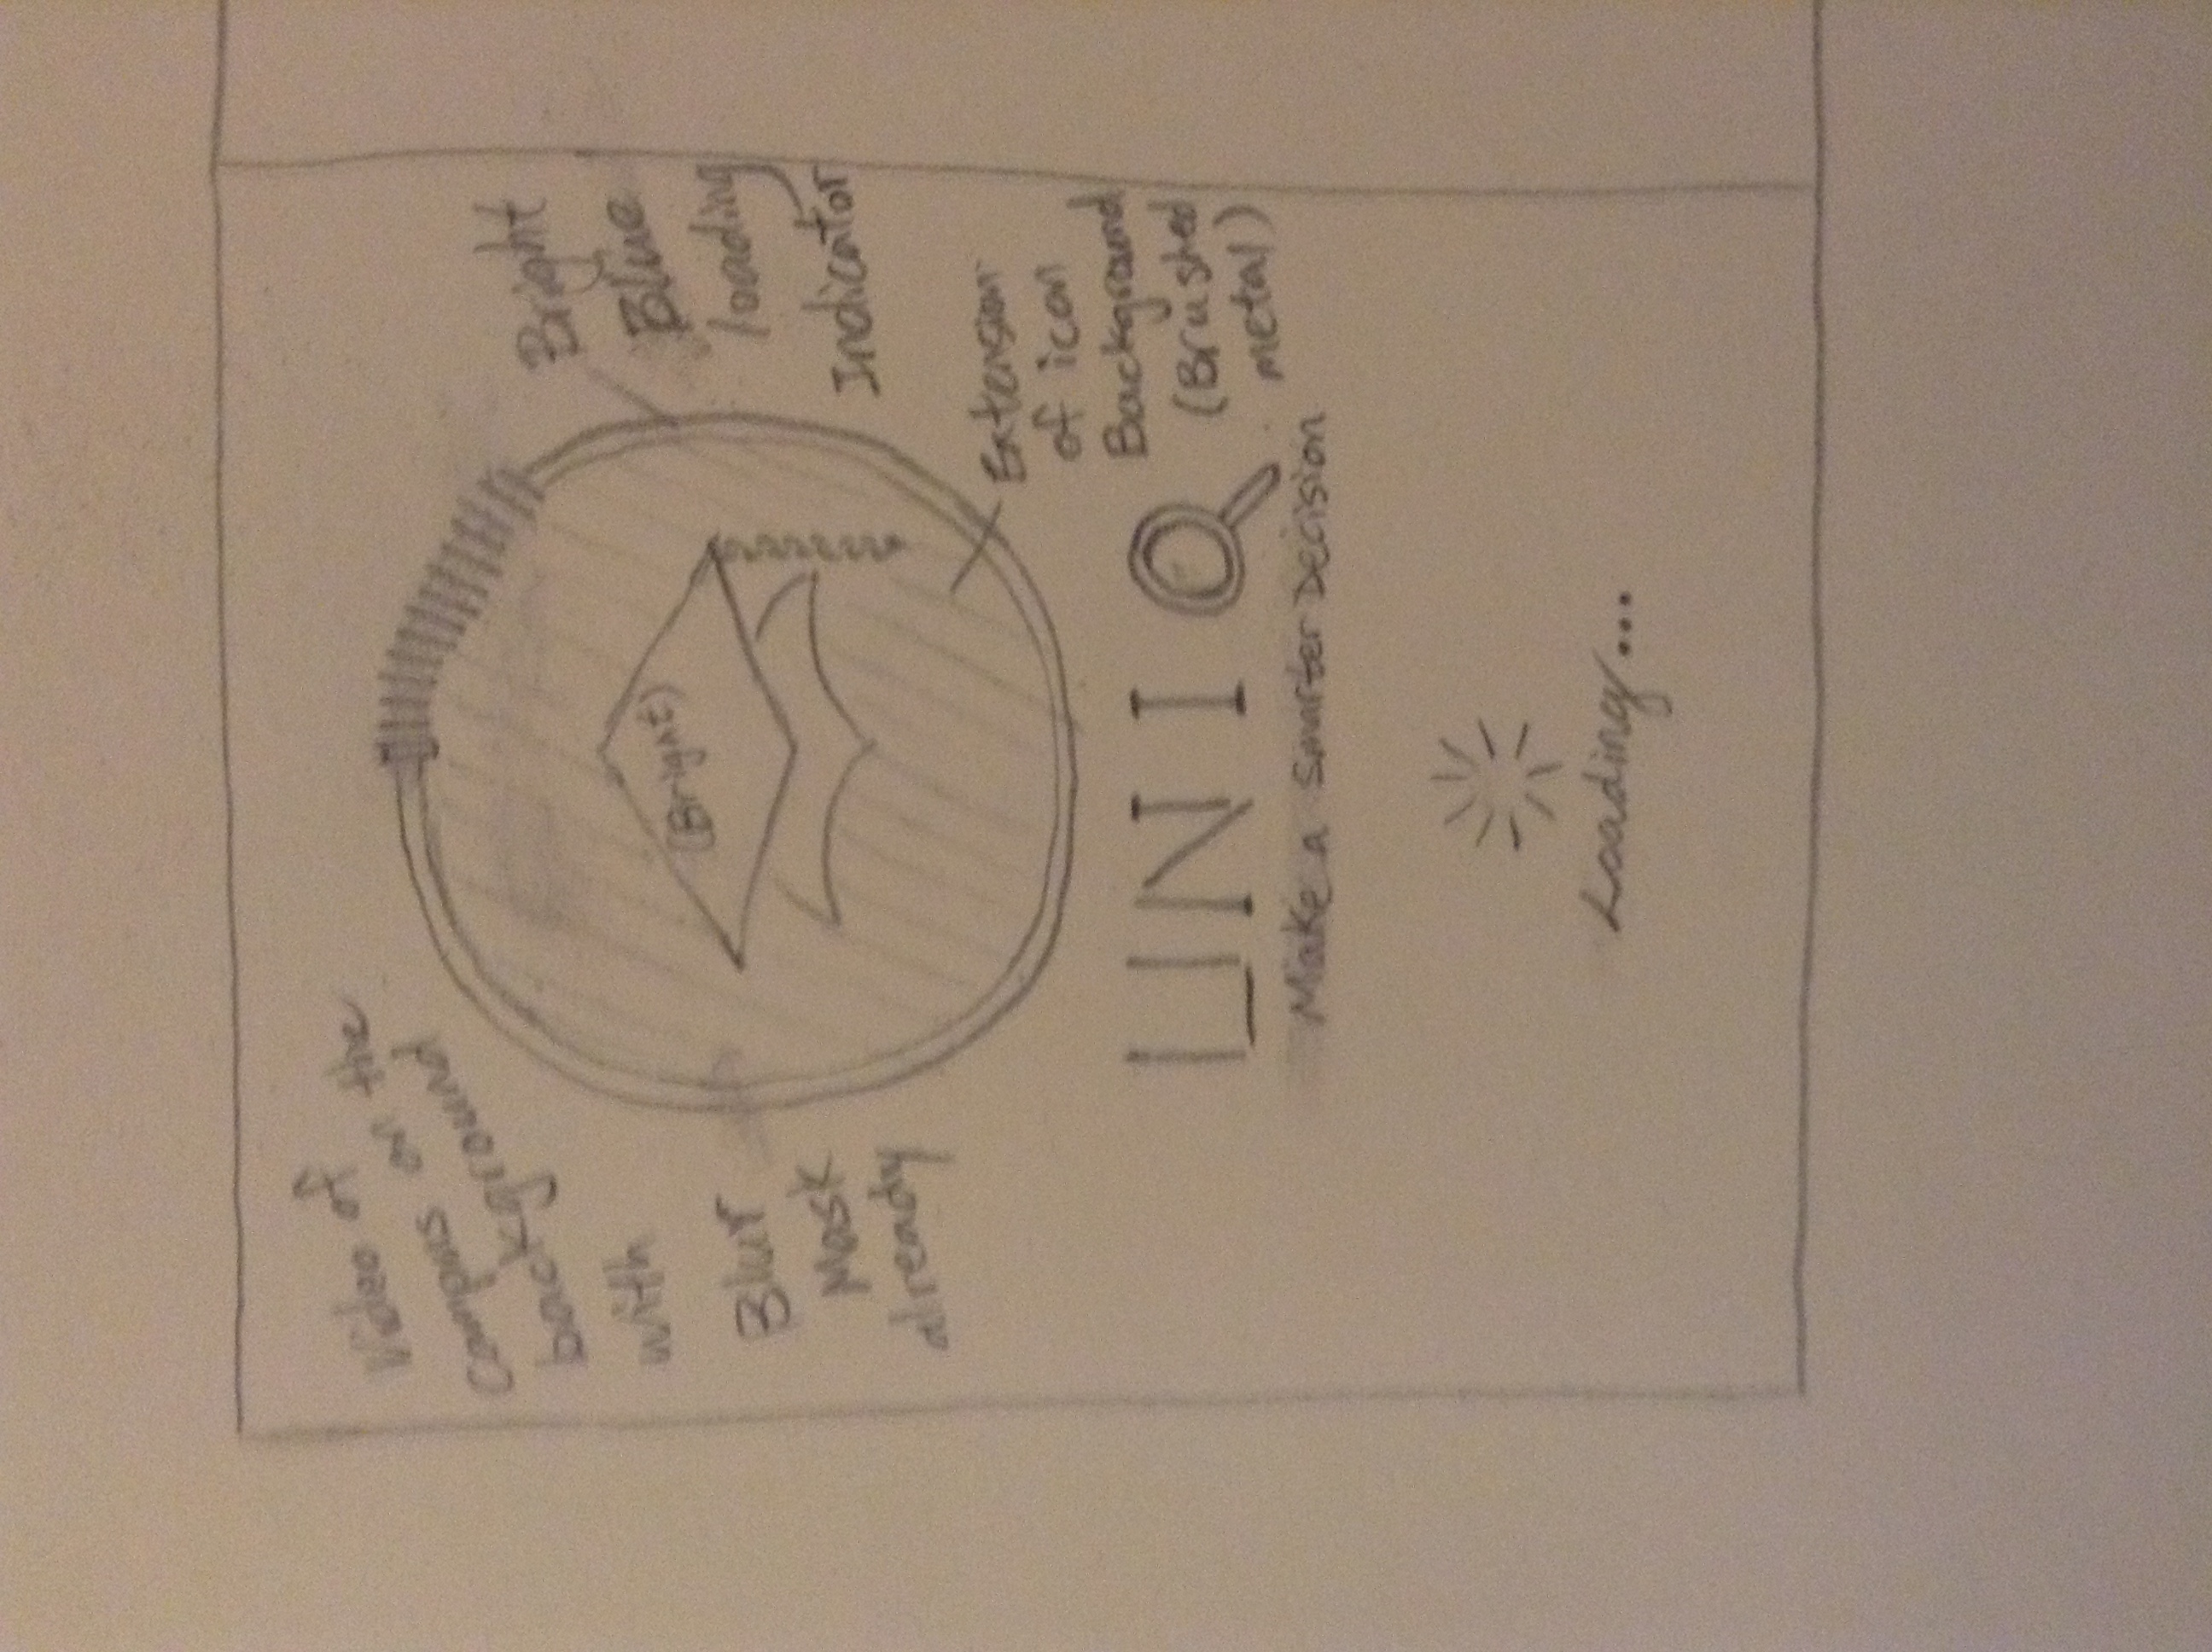 Video of
Campus on the
background
with
Blur
Mask
already
(Bright)
Bright
Blue
loading
Indicator
Extension
of icon
Background
(Brushed
metal)
UNIQ
Make a Smarter Decision
Loading...